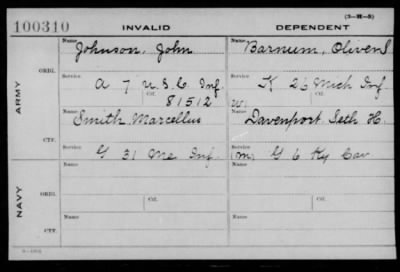 (3-H-5)
100310 INVALID DEPENDENT
Name Name
Johnson, John Barnum, Oliver S
ARMY ORIG. Service Service
A 7 U.S.C. Inf. K 26 Mich Inf
Ctf. 81512 Ctf. (W)
Name Name
Smith Marcellus Davenport, Seth H.
CTF. Service Service
G 31 Me Inf. (M) G 6 Ky Cav
NAVY ORIG. Name Name
Ctf. Ctf.
CTF. Name Name